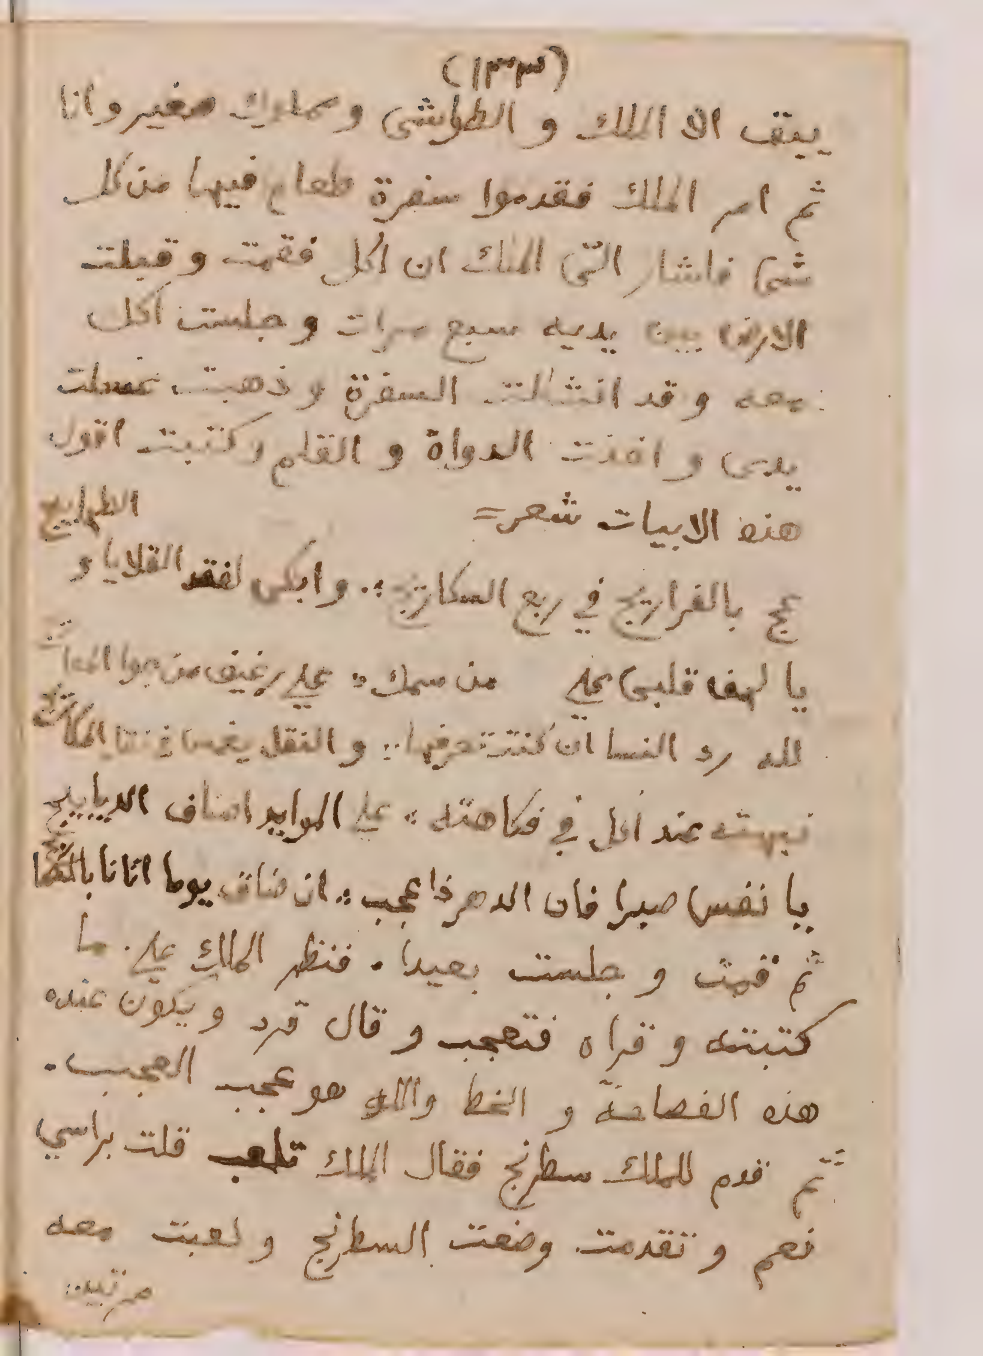 (١٣٣)
يبق الا الملك و الطواشى ومملوك صغير وانا
ثم امر الملك فقدموا سفرة طعام فيها من كل
شى فاشار الىّ الملك ان اكل فقمت وقبلت
الارض بين يديه سبع مرات وجلست آكل
معه وقد انشالت السفرة وذهبت غسلت
يدى و اخذت الدواة و القلم وكتبت اقول
هذه الابيات شعر =
عج بالفراريج في ربع السكاريج ؞ وابكى لفقد القلايا و الطهابيج
يا لهف قلبى على من سمك ؞ على رغيف من
لله رد النسا ان كنت تعرفها ؞ و النقل يغمس في
نبهته عند اكل في فكاهته ؞ على الموايد اصناف الديابيج
يا نفس صبرا فان الدهر ذا عجب ؞ ان ضاق يوما اتانا
ثم قمت و جلست بعيدا . فنظر الملك على ما
كتبته و قراه فتعجب و قال قرد و يكون عنده
هذه الفصاحة و الخط والله هو عجب العجيب .
ثم قدم للملك سطرنج فقال الملك تلعب قلت براسي
نعم و تقدمت وضعت السطرنج و لعبت معه
مرتين